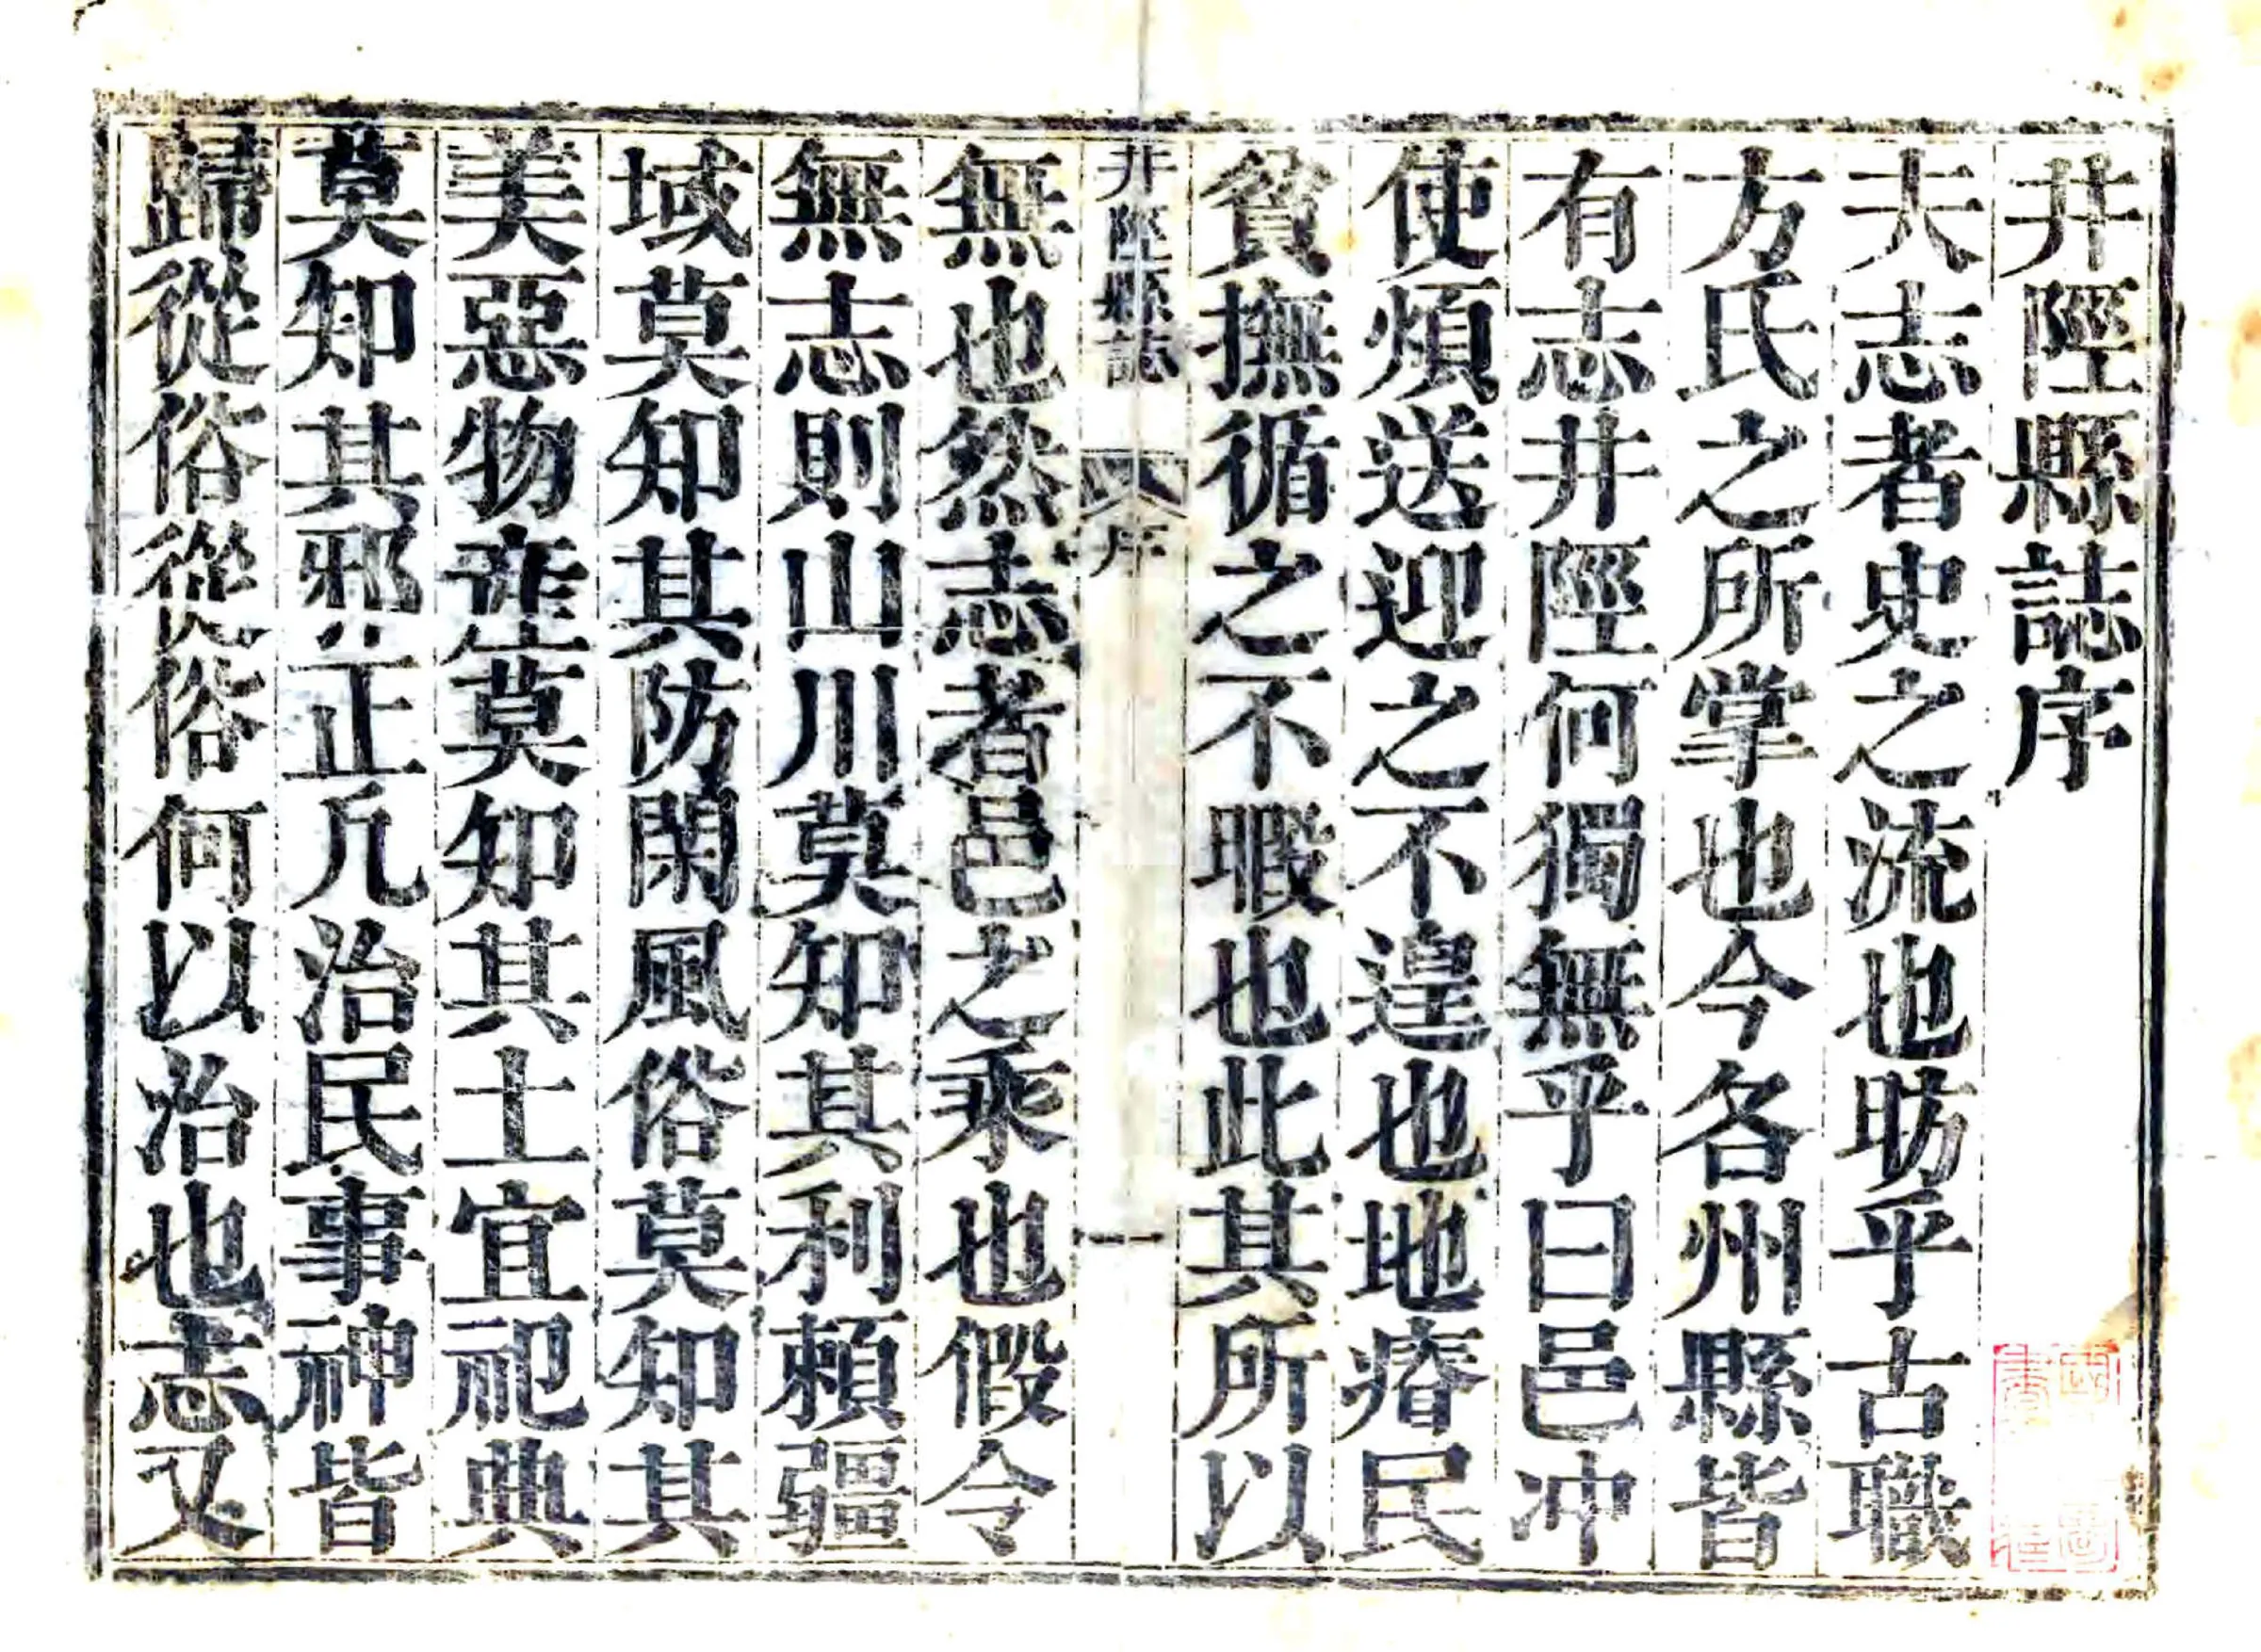 井陘縣誌序
夫志者史之流也昉乎古職
方氏之所掌也今各州縣皆
有志井陘何獨無乎曰邑冲
使煩送迎之不遑也地瘠民
貧撫循之不暇也此其所以
井陘縣誌 序 一
無也然志者邑之乘也假令
無志則山川莫知其利賴疆
域莫知其防閑風俗莫知其
美惡物産莫知其土宜祀典
莫知其邪正凢治民事神皆
歸從俗從俗何以治也志又